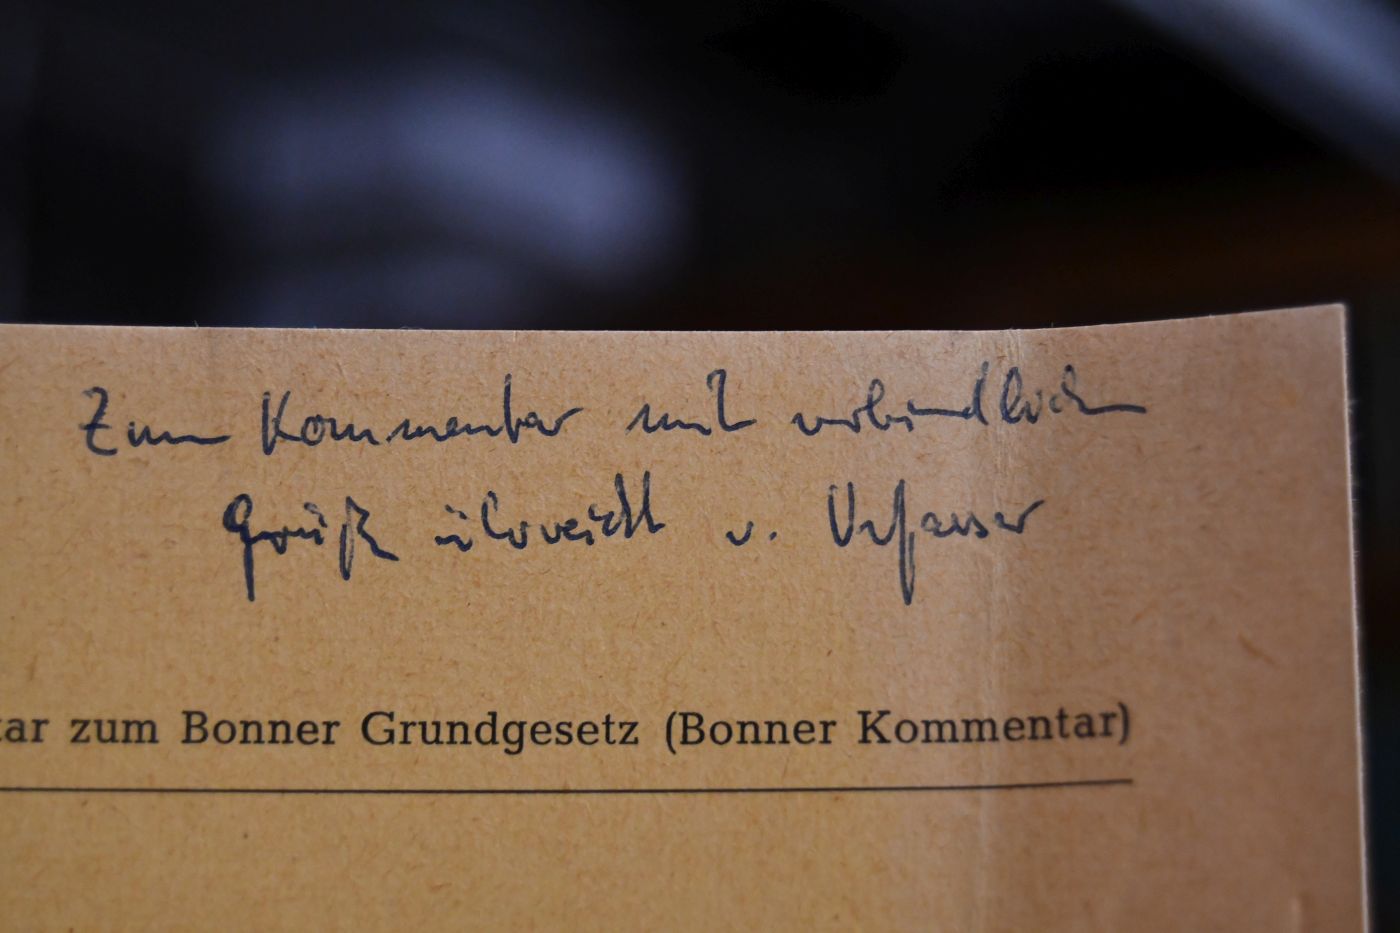 Zum Kommentar mit verbindlichen
Grüßen überreicht v. Verfasser
tar zum Bonner Grundgesetz (Bonner Kommentar)